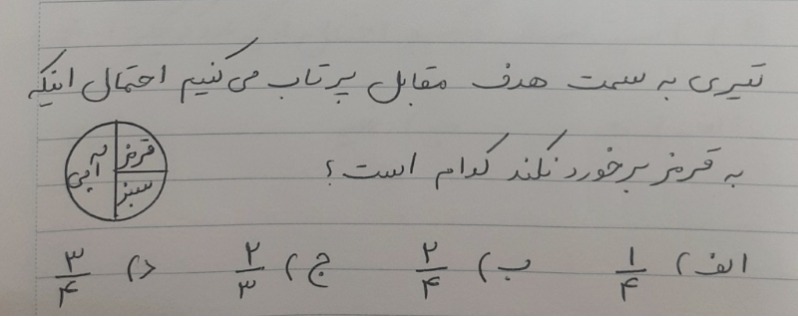 تیری به سمت هدف مقابل پرتاب می‌کنیم احتمال اینکه
به قرمز برخورد نکند کدام است؟
قرمز
آبی
سبز
الف) ۱/۴ ب) ۲/۴ ج) ۲/۳ د) ۳/۴